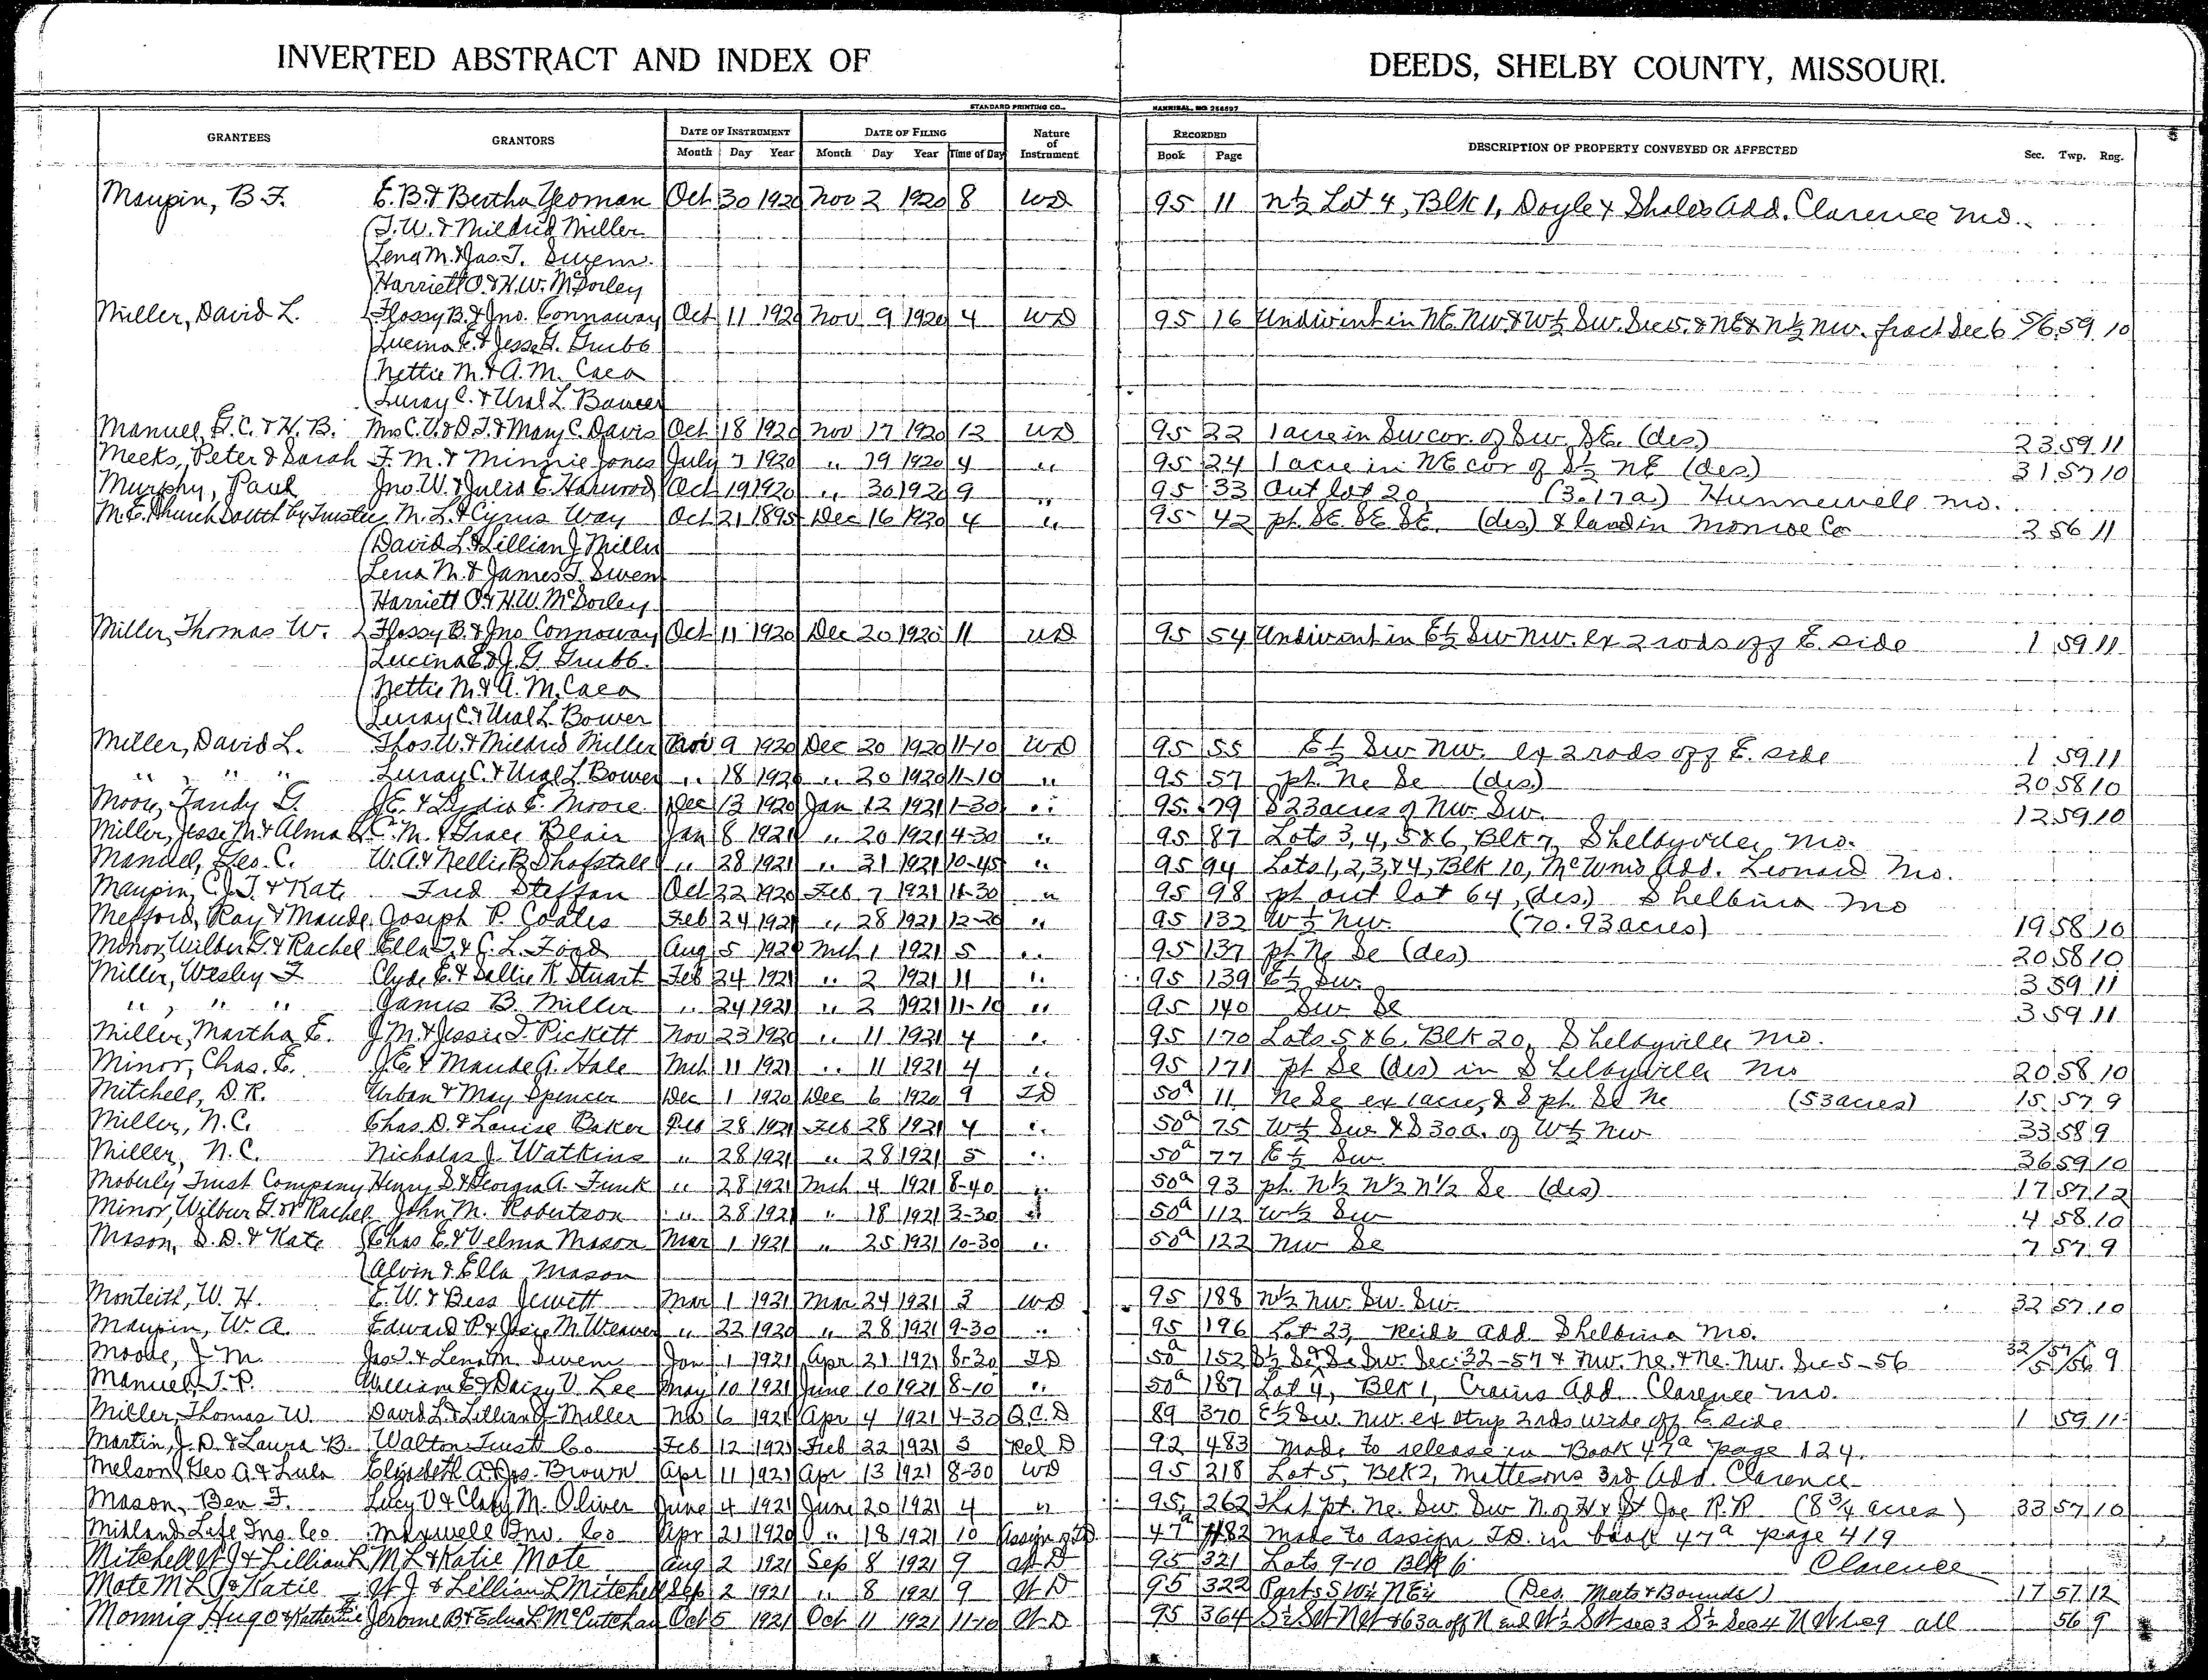 INVERTED ABSTRACT AND INDEX OF DEEDS, SHELBY COUNTY, MISSOURI.
STANDARD PRINTING CO., HANNIBAL, MO
GRANTEES GRANTORS DATE OF INSTRUMENT DATE OF FILING Nature of Instrument RECORDED DESCRIPTION OF PROPERTY CONVEYED OR AFFECTED Sec. Twp. Rng.
Month Day Year Month Day Year Time of Day Book Page
Maupin, B.F. E.B. & Bertha Yeoman Oct 30 1920 Nov 2 1920 8 WD 95 11 N½ Lot 4, Blk 1, Doyle & Shales Add. Clarence Mo.
T.W. & Mildrid Miller
Lena M. & Jas. T. Swem.
Harriett O. & H.W. McSorley
Miller, David L. Flossy B. & Jno. Connaway Oct 11 1920 Nov 9 1920 4 WD 95 16 Undiv int in NE NW & W½ SW. Sec 5. & NE & N½ NW. fract Sec 6 5/6 59 10
Lucina E. & Jesse G. Grubb
Nettie M. & A.M. Caea
Luray C. & Ural L. Bower
Manuel, G.C. & H.B. Mrs C.V. & D.T. & Mary C. Davis Oct 18 1920 Nov 17 1920 12 WD 95 22 1 acre in SW cor. of SW. SE. (des.) 23 59 11
Meeks, Peter & Sarah F.M. & Minnie Jones July 7 1920 " 19 1920 4 " 95 24 1 acre in NE cor of S½ NE (des) 31 57 10
Murphy, Paul Jno. W. & Julia E. Harwood Oct 19 1920 " 30 1920 9 " 95 33 Out lot 20 (3.17a.) Hunnewell Mo.
M.E. Church South by Trustees M.L. & Cyrus Way Oct 21 1895 Dec 16 1920 4 " 95 42 pt. SE SE SE. (des) & land in Monroe Co 2 56 11
David L. & Lillian J. Miller
Lena M. & James T. Swem
Harriett O. & H.W. McSorley
Miller, Thomas W. Flossy B. & Jno Connoway Oct 11 1920 Dec 20 1920 11 WD 95 54 Undiv int in E½ SW NW. ex 2 rods off E. side 1 59 11
Lucina E. & J.G. Grubb.
Nettie M. & A.M. Caea
Luray C. & Ural L. Bower
Miller, David L. Thos. W. & Mildrid Miller Nov 9 1920 Dec 20 1920 11-10 WD 95 55 E½ SW NW. ex 2 rods off E. side 1 59 11
" " " Luray C. & Ural L Bower " 18 1920 " 20 1920 11-10 " 95 57 pt. Ne Se (des.) 20 58 10
Moore, Tandy G. J.E. & Lydia E. Moore Dec 13 1920 Jan 12 1921 1-30 " 95 79 S 23 acres of NW. SW. 12 59 10
Miller, Jesse M. & Alma L. C.M. & Grace Blair Jan 8 1921 " 20 1921 4-30 " 95 87 Lots 3, 4, 5 & 6, Blk 7, Shelbyville, Mo.
Manuel, Geo. C. W.A. & Nellie B. Shofstall " 28 1921 " 31 1921 10-45 " 95 94 Lots 1, 2, 3, & 4, Blk 10, Add. Leonard Mo.
Maupin, C.J.T. & Kate Fred Steffan Oct 22 1920 Feb 7 1921 11-30 " 95 98 pt out lot 64, (des.) Shelbina Mo
Mefford, Ray & Maude Joseph P. Coates Feb 24 1921 " 28 1921 12-20 " 95 132 W½ NW. (70.93 acres) 19 58 10
Minor, Wilbur G. & Rachel Ella T. & C.L. Ford Aug 5 1920 Mch 1 1921 5 " 95 137 pt Ne Se (des) 20 58 10
Miller, Wesley F. Clyde E. & Sallie K. Stuart Feb 24 1921 " 2 1921 11 " 95 139 E½ SW. 3 59 11
" " " James B. Miller " 24 1921 " 2 1921 11-10 " 95 140 SW Se 3 59 11
Miller, Martha E. J.M. & Jessie T. Pickett Nov 23 1920 " 11 1921 4 " 95 170 Lots 5 & 6. Blk 20, Shelbyville Mo.
Minor, Chas. E. J.E. & Maude A. Hale Mch 11 1921 " 11 1921 4 " 95 171 pt Se (des) in Shelbyville Mo 20 58 10
Mitchell, D.R. Urban & May Spencer Dec 1 1920 Dec 6 1920 9 TD 50a 11 Ne Se ex 1 acre, & S pt. Se Ne (53 acres) 15 57 9
Miller, N.C. Chas. D. & Louise Baker Feb 28 1921 Feb 28 1921 4 " 50a 75 W½ SW & S 30a. of W½ NW 33 58 9
Miller, N.C. Nicholas J. Watkins " 28 1921 " 28 1921 5 " 50a 77 E½ SW. 36 59 10
Moberly Trust Company Henry S. & Georgia A. Funk " 28 1921 Mch 4 1921 8-40 " 50a 93 pt. N½ N½ N½ Se (des) 17 57 12
Minor, Wilbur G. & Rachel John M. Robertson " 28 1921 " 18 1921 3-30 " 50a 112 W½ SW 4 58 10
Mason, D.D. & Kate Chas E. & Velma Mason Mar 1 1921 " 25 1921 10-30 " 50a 122 NW Se 7 57 9
Alvin & Ella Mason
Monteith, W.H. E.W. & Bess Jewett Mar 1 1921 Mar 24 1921 3 WD 95 188 N½ NW. SW. SW. 32 57 10
Maupin, W.A. Edward P. & Josie M. Weaver " 22 1920 " 28 1921 9-30 " 95 196 Lot 23, Reid's Add Shelbina Mo.
Moore, J.M. Jas. T. & Lena M. Swem Jan 1 1921 Apr 21 1921 8-30 TD 50a 152 S½ Se & Se SW. Sec. 32-57 & NW. Ne. & Ne. NW. Sec 5-56 32/5 57/56 9
Manuel, T.P. William E. & Daisy V. Lee May 10 1921 June 10 1921 8-10 " 50a 187 Lot 4, Blk 1, Crains Add. Clarence Mo.
Miller, Thomas W. David L. & Lillian J. Miller Nov 6 1921 Apr 4 1921 4-30 Q.C.D 89 370 E½ SW. NW. ex strip 2 rds wide off E side 1 59 11
Martin, J.D. & Laura B. Walton Trust Co Feb 12 1921 Feb 22 1921 3 Rel D 92 483 Made to release in Book 47a page 124.
Melson, Geo A. & Lula Elizabeth A. & Jas. Brown Apr 11 1921 Apr 13 1921 8-30 WD 95 218 Lot 5, Blk 2, Mattesons 3rd Add. Clarence
Mason, Ben F. Lucy V. & M. Oliver June 4 1921 June 20 1921 4 " 95 262 That pt. Ne. SW. SW N. of H & St Joe R.R (8¾ acres) 33 57 10
Midland Life Ins. Co Maxwell Inv. Co Apr 21 1920 " 18 1921 10 Assign of TD 47a 482 Made to assign T.D. in book 47a page 419
Mitchell W.J & Lillian L M L & Katie Mote Aug 2 1921 Sep 8 1921 9 W D 95 321 Lots 9-10 Blk 6 Clarence
Mote M L & Katie W J & Lillian L Mitchell Sep 2 1921 " 8 1921 9 W D 95 322 Part S W¼ N E¼ (Des. Meets & Bounds) 17 57 12
Monnig Hugo & Katherine Jerome B & Edna L McCutchan Oct 5 1921 Oct 11 1921 11-10 W-D 95 364 S½ SW NW & 63a off N end W½ SW sec 3 S½ Sec 4 all 56 9